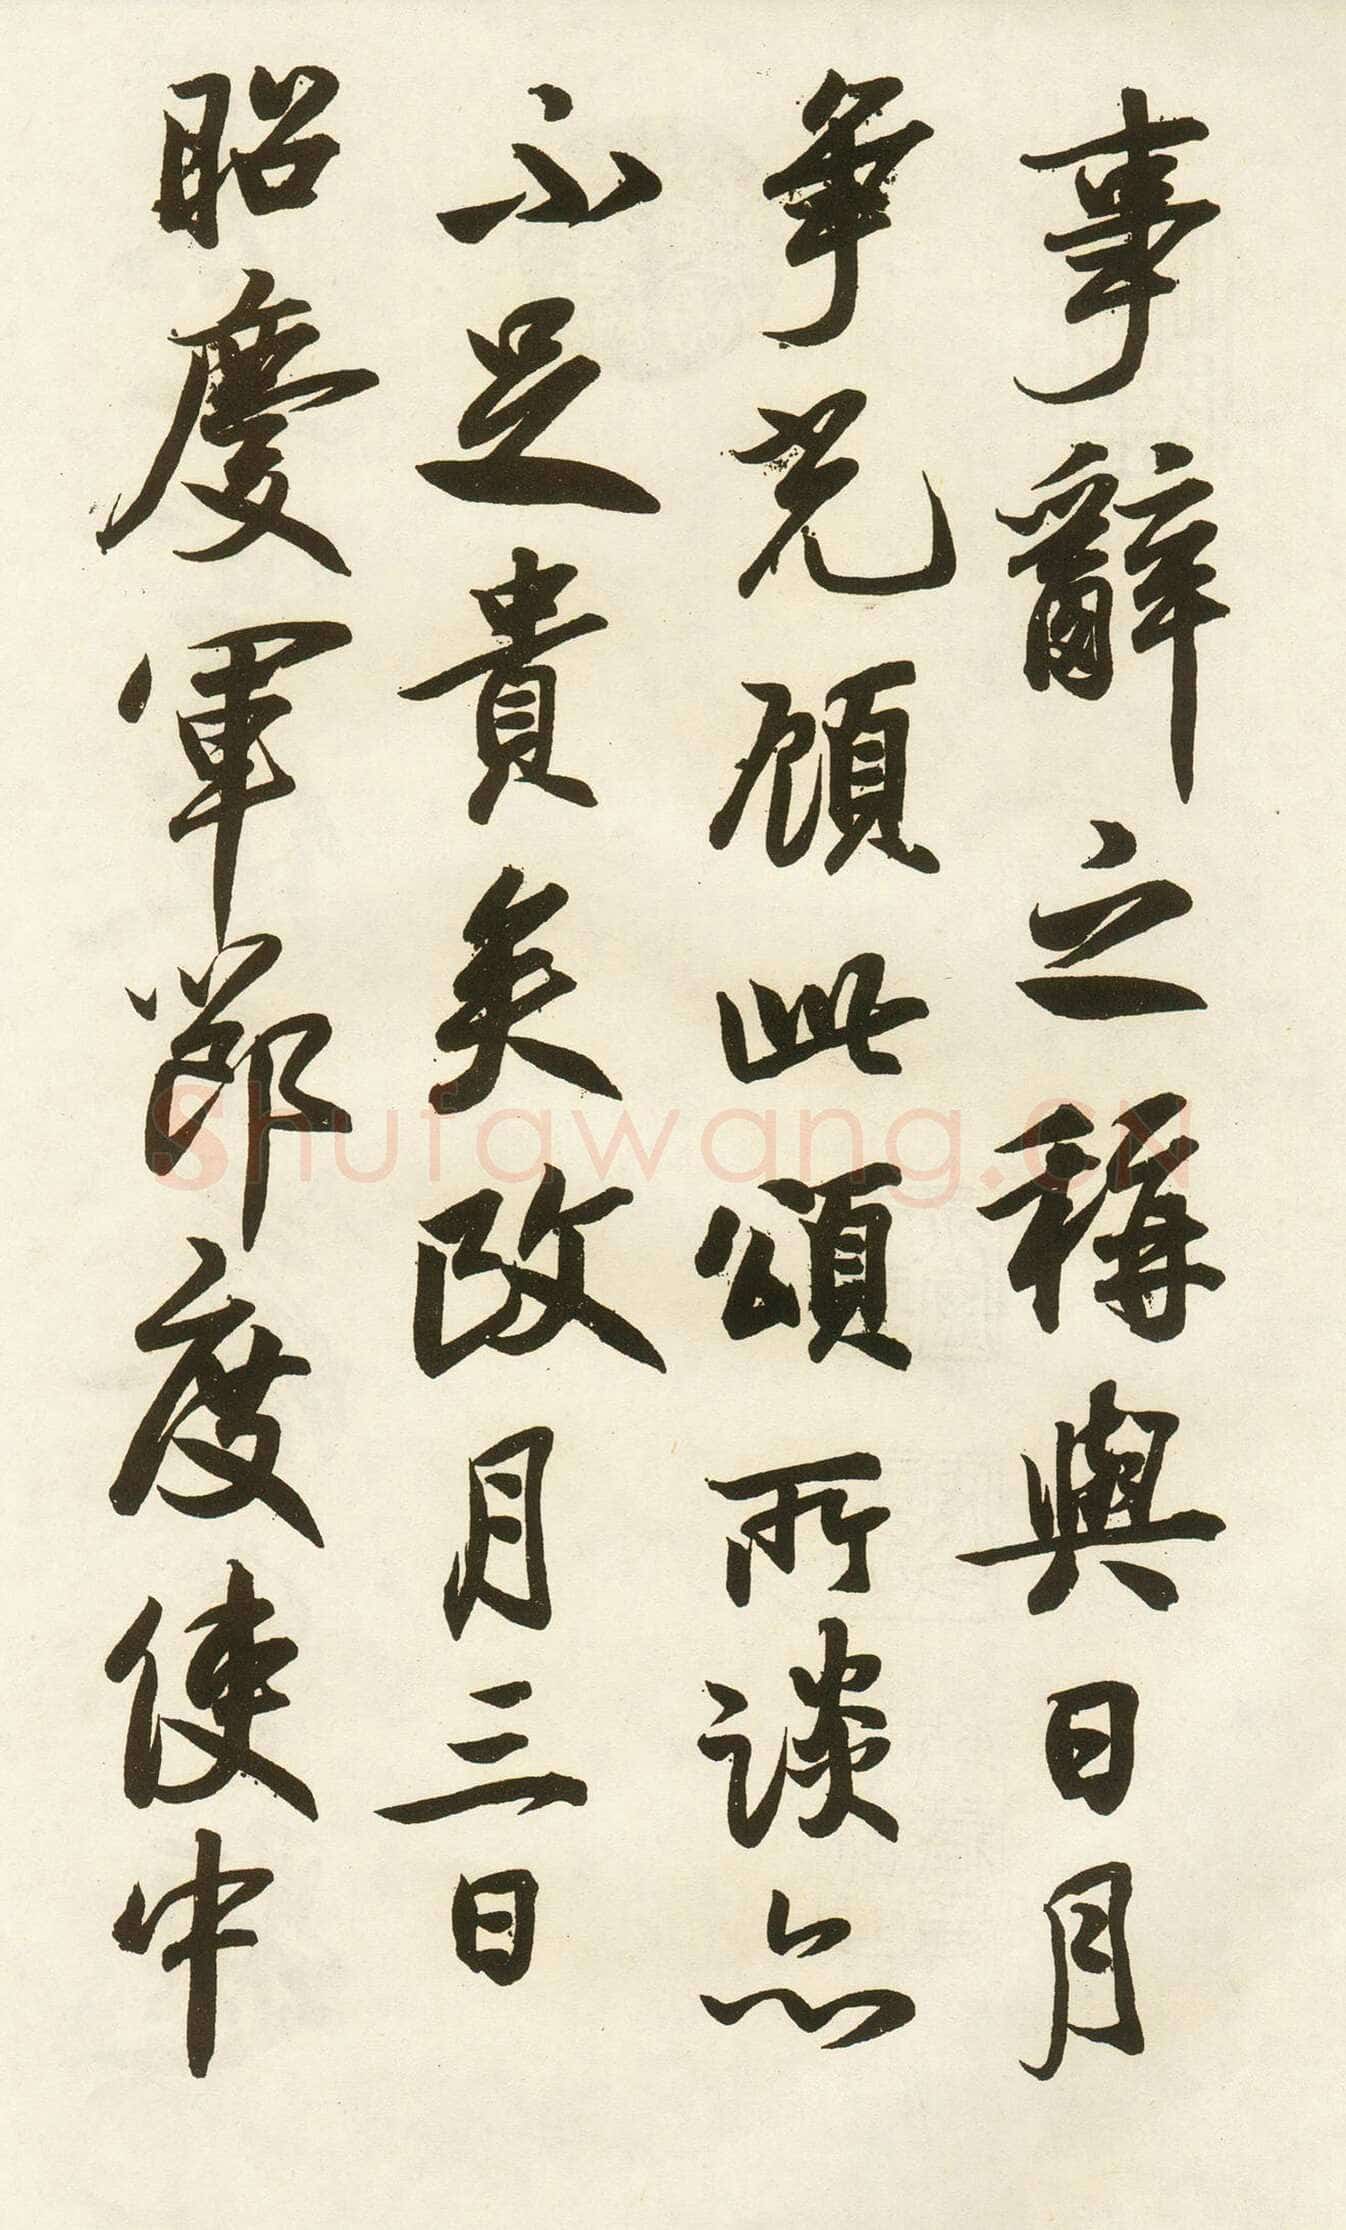 事辭之稱與日月
爭光顧此頌所談亦
不足貴矣改月三日
昭慶軍節度使中
Shufawang.CN